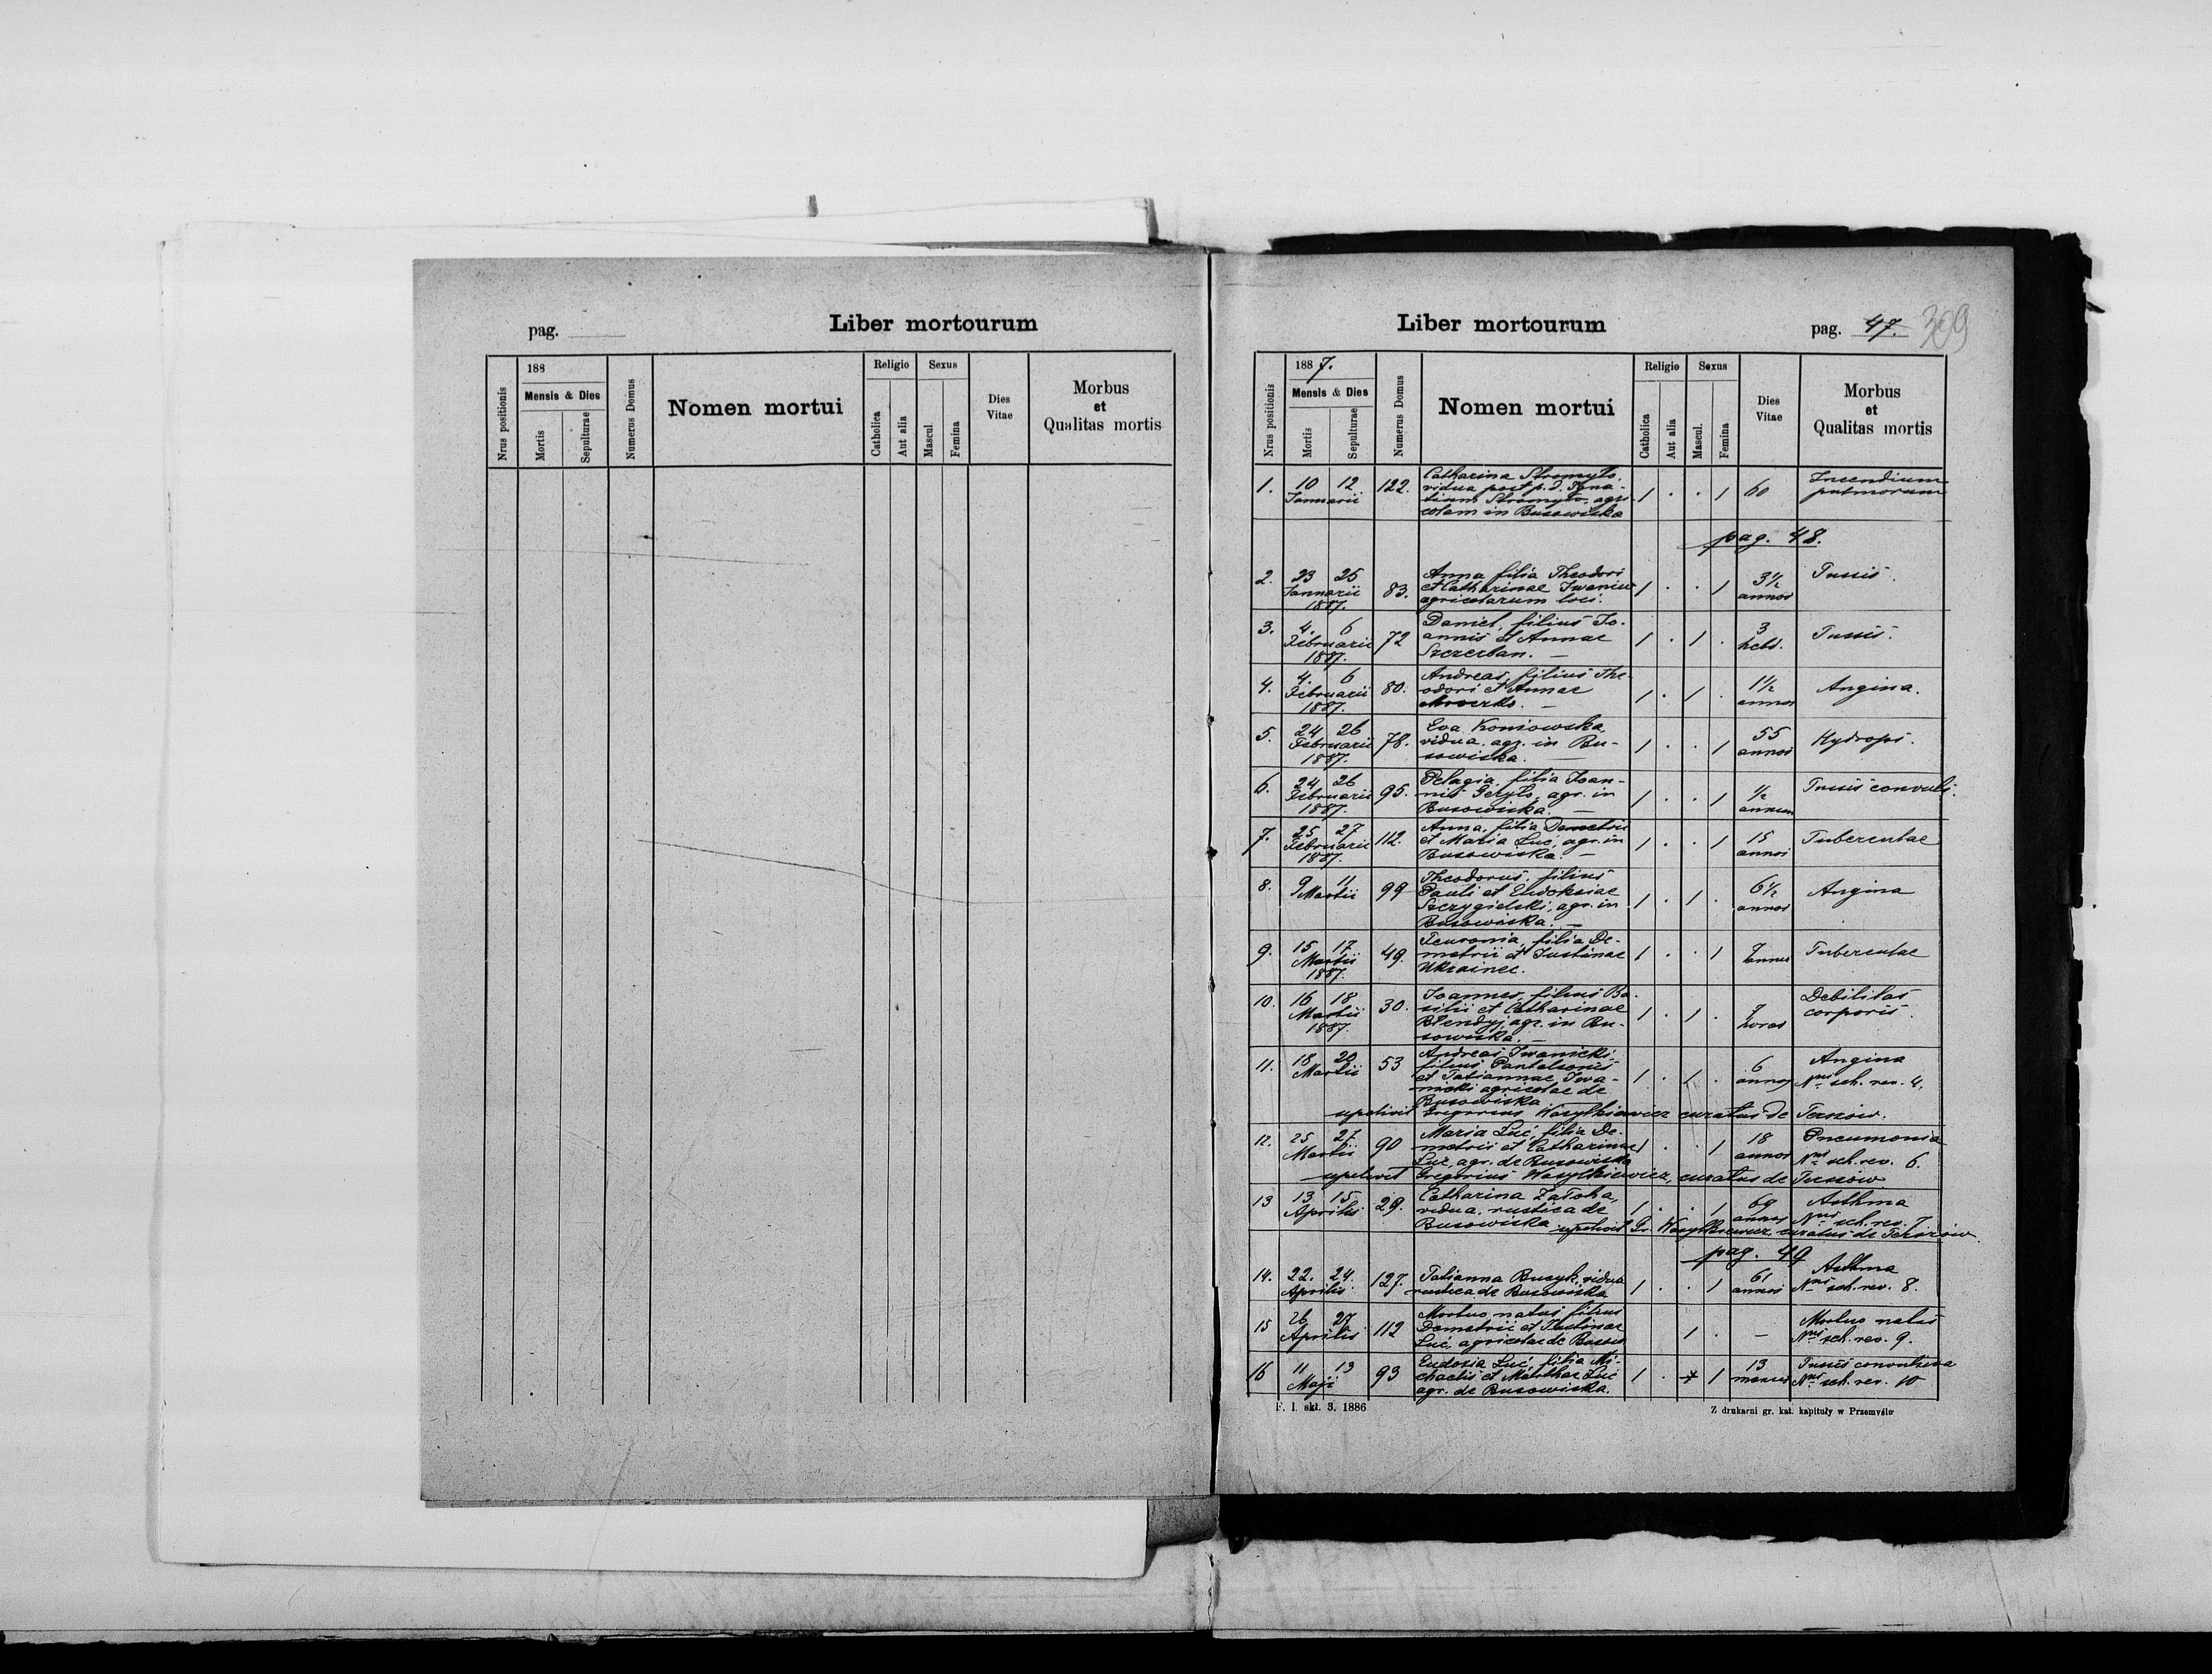 pag.
Liber mortourum
Nrus positionis
188
Mensis & Dies
Mortis
Sepulturae
Numerus Domus
Nomen mortui
Religio
Catholica
Aut alia
Sexus
Mascul.
Femina
Dies
Vitae
Morbus
et
Qualitas mortis
Liber mortourum
pag. 47. 309
Nrus positionis
1887.
Mensis & Dies
Mortis
Sepulturae
Numerus Domus
Nomen mortui
Religio
Catholica
Aut alia
Sexus
Mascul.
Femina
Dies
Vitae
Morbus
et
Qualitas mortis
1. 10 12 Januarii 122.
Catharina Stromyło,
vidua post p. d. Igna-
tium Stromyło, agri-
colam in Busowiska
1 . . 1 60
Incendium
pulmorum
pag. 48.
2. 23 25 Januarii 1887. 83.
Anna filia Theodori
et Catharinae Iwaniw
agricolarum loci.
1 . . 1 3 1/2 annos
Tussis.
3. 4. 6 Februarii 1887. 72
Daniel, filius Jo-
annis et Annae
Szczerban. —
1 . 1 . 3 hebd.
Tussis.
4. 4. 6 Februarii 1887. 80.
Andreas, filius The-
odori et Annae
1 . 1 . 1 1/2 annos
Angina.
5. 24 26 Februarii 1887. 78.
Eva Koniowska,
vidua, agr. in Bu-
sowiska. —
1 . . 1 55 annos
Hydrops.
6. 24 26 Februarii 1887. 95.
Pelagia, filia Joan-
nis Geryło, agr. in
Busowiska. —
1 . . 1 1/2 annum
Tussis convuls.
7. 25 27 Februarii 1887. 112.
Anna, filia Demetrii
et Maria Luć, agr. in
Busowiska. —
1 . . 1 15 annos
Tuberculae
8. 9 11 Martii 99
Theodorus, filius
Pauli et Eudoksiae
Szczygielski, agr. in
Busowiska. —
1 . 1 . 6 1/2 annos
Angina
9. 15 17 Martii 1887. 49.
filia De-
metrii et Justinae
Ukrainec.
1 . . 1
Tuberculae
10. 16 18 Martii 1887. 30.
Joannes, filius Ba-
silii et Catharinae
Błendyj, agr. in Bu-
sowiska. —
1 . 1 . 7 horas
Debilitas
corporis.
11. 18 20 Martii 53
Andreas Iwanicki,
filius Panteleonis
et Tatiannae Iwa-
nicki agricolae de
Busowiska
1 . 1 . 6 annos
Angina
Nrus sch. rev. 4.
sepelivit Gregorius Wasylkiewicz curatus de Terszow.
12. 25 27 Martii 90
Maria Luć, filia De-
metrii et Catharinae
Luć, agr. de Busowiska
1 . . 1 18 annos
Pneumonia
Nrus sch. rev. 6.
sepelivit Gregorius Wasylkiewicz, curatus de Terszow
13 13 15 Aprilis 29.
Catharina Załoha,
vidua, rustica de
Busowiska
1 . . 1 69 annos
Asthma
Nrus sch. rev. 7
sepelivit Gr. Wasylkiewicz, curatus de Terszow.
pag. 49
14. 22. 24. Aprilis 127.
Tatianna Busyk, vidua
rustica de Busowiska
1 . . 1 61 annos
Asthma
Nrus sch. rev. 8.
15 26 27 Aprilis 112
Mortuo natus filius
Demetrii et Justinae
Luć, agricolae de Busow
1 . —
Mortuo natus
Nrus sch. rev. 9.
16 11 13 Maji 93
Eudosia Luć, filia Mi-
chaelis et Marthae Luć
agr. de Busowiska.
1 . 1 13 menses
Tussis convulsiva
Nrus sch. rev. 10
F. l. skł. 3. 1886
Z drukarni gr. kat. kapituły w Przemyślu